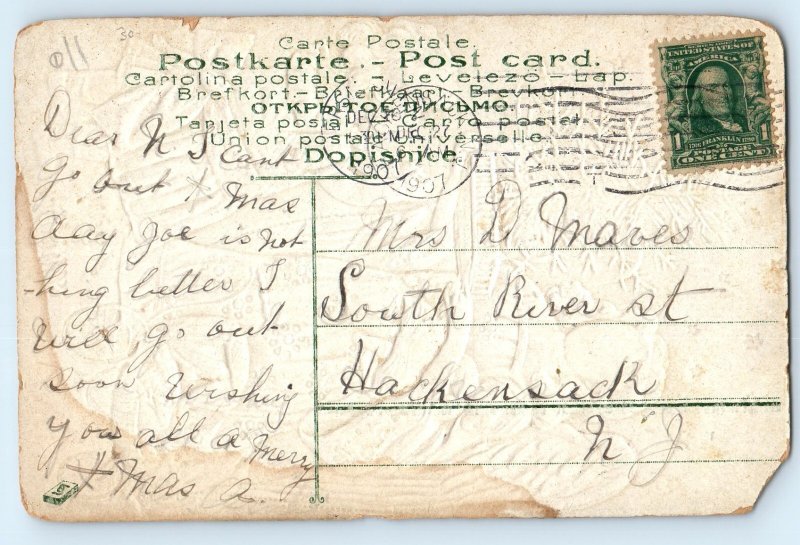 011 30
Carte Postale.
Postkarte. - Post card.
Cartolina postale. - Levelező - Lap.
Brefkort.- Briefkaart.- Brevkort.
ОТКРЫТОЕ ПИСЬМО.
Tarjeta postal. Carto postal.
Union postale universelle.
Dopisnice.
1907 1907
UNITED STATES OF
AMERICA
1 1
1706 FRANKLIN 1790
POSTAGE
ONE CENT
Dear N I Cant
go out X Mas
day Joe is not
-hing better I
will go out
soon Wishing
you all a Merry
X Mas a.
Mrs D Maves
South River st
Hackensack
N J